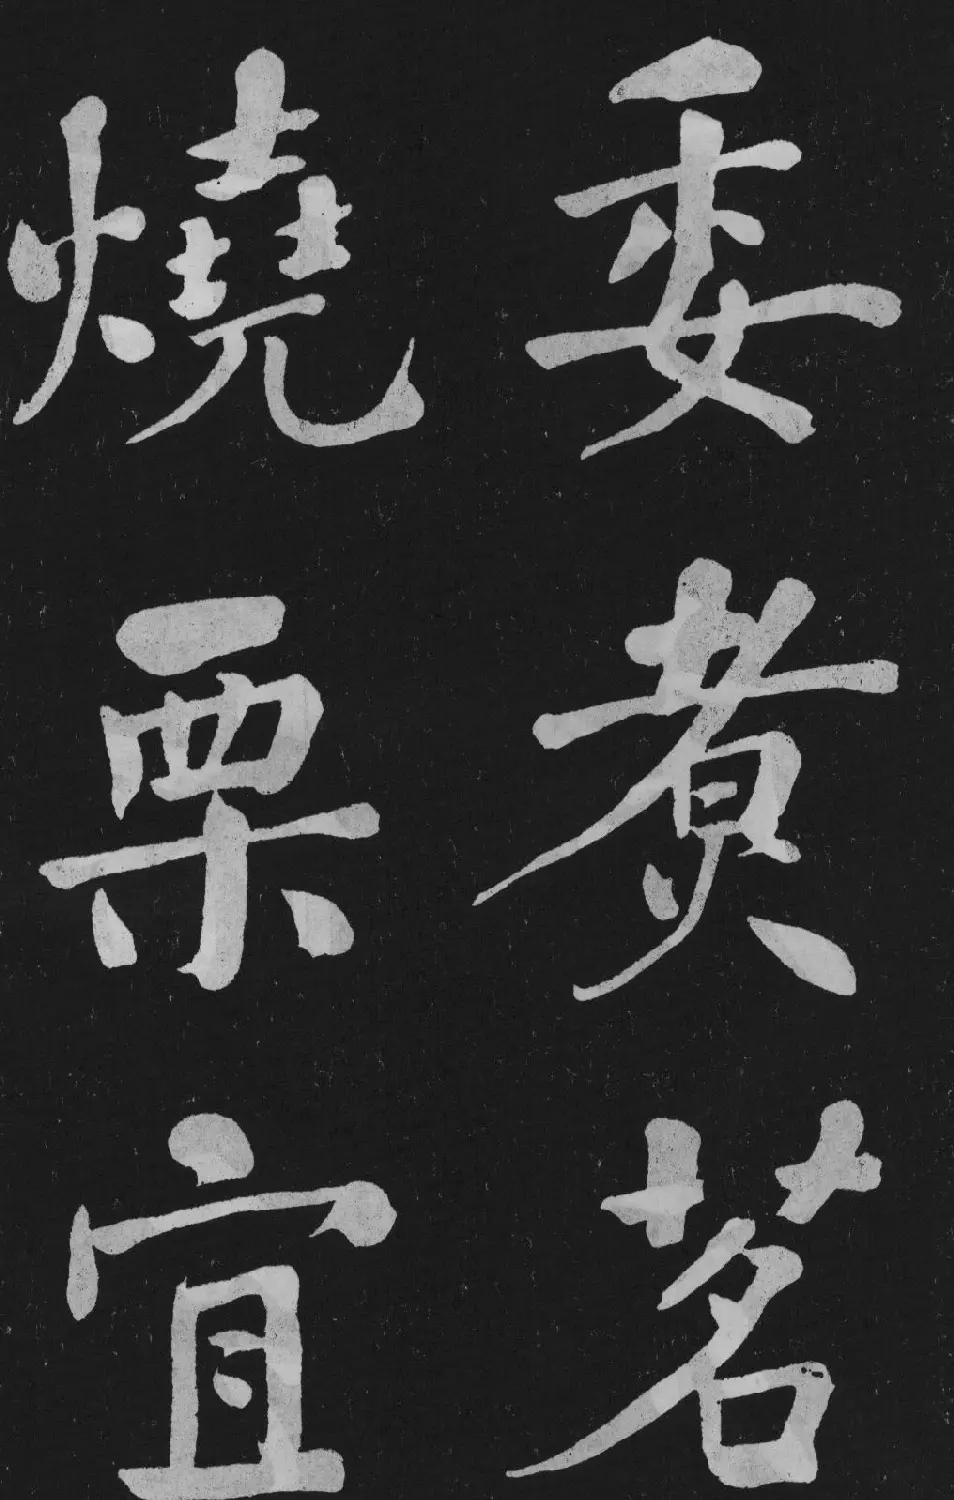 委煮茗
燒栗宜